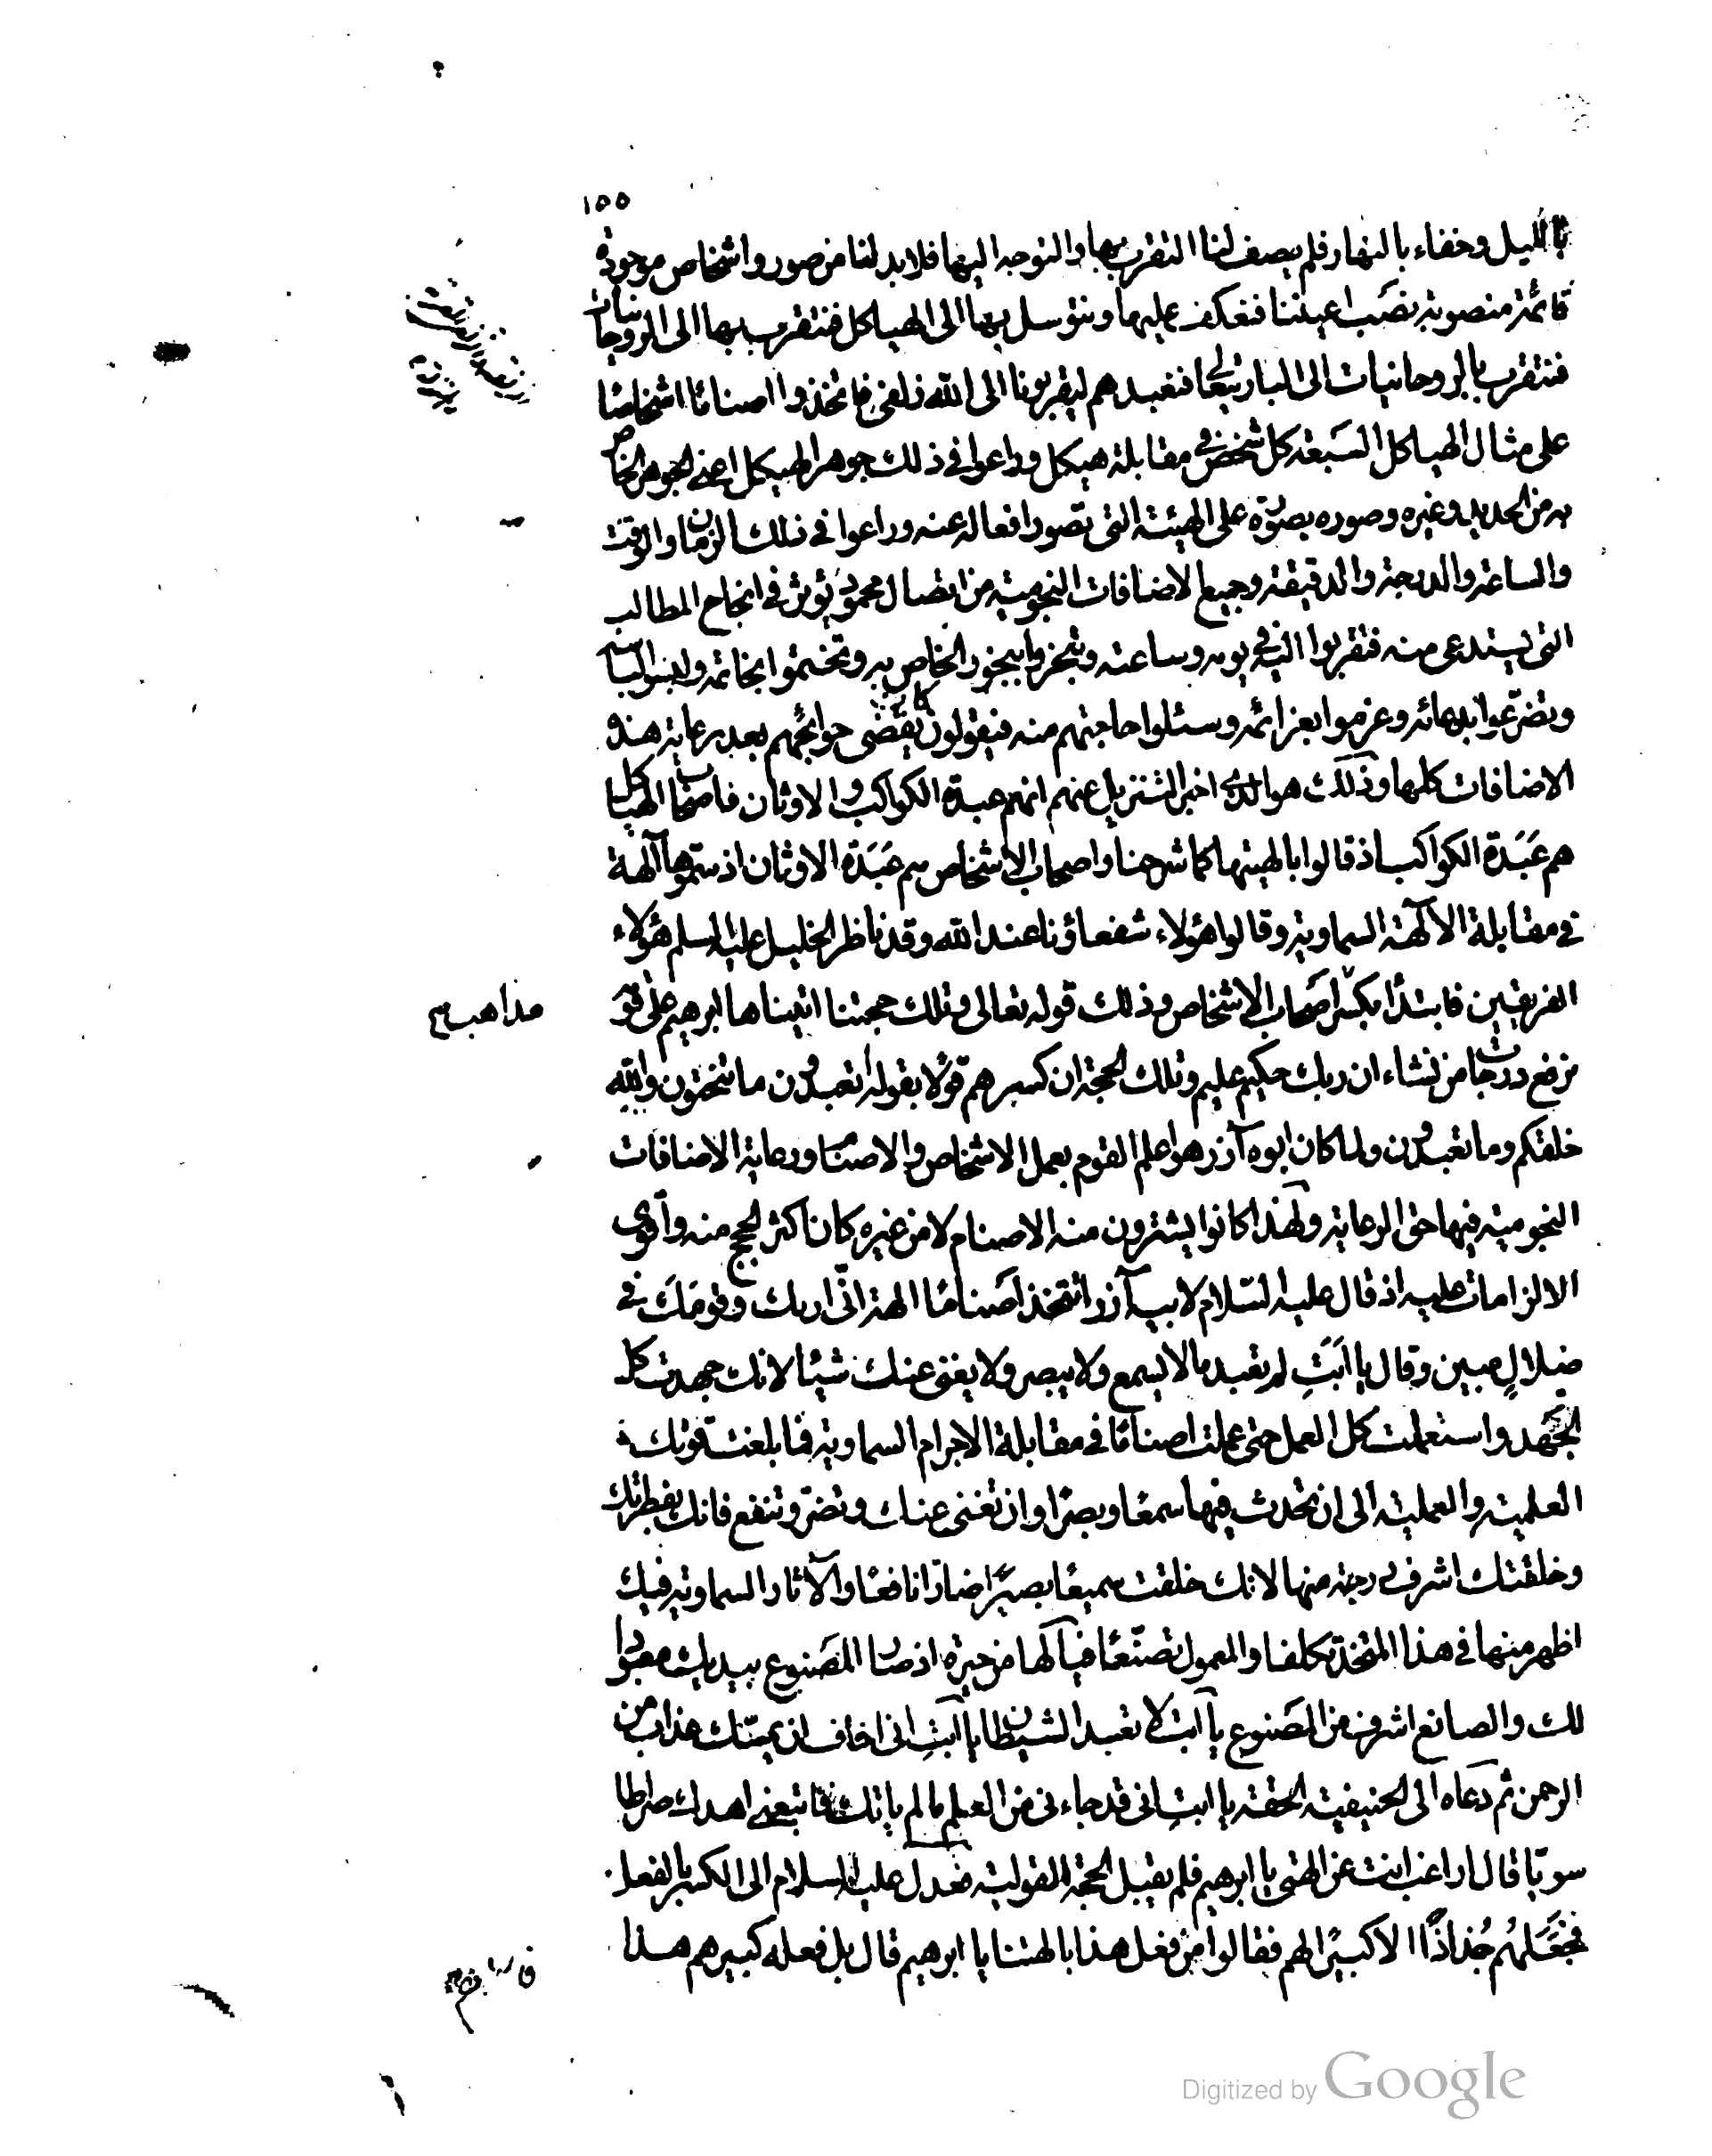 ١٥٥
بالليل وخفاء بالنهار فلم يصف لنا التقرب بها والتوجه اليها فلا بد لنا من صور واشخاص موجودة
قائمة منصوبة نصَب اعيننا فنعكف عليها ونتوسل بها الى الهياكل فنتقرب بها الى الروحانيات
فنتقرب بالروحانيات الى البارى تعالى فنعبدهم ليقربونا الى الله زلفى فاتخذوا اصنامًا اشخاصًا
على مثال الهياكل السَبعة كل شخص في مقابلة هيكل وراعوا في ذلك جوهر الهيكل اعنى الجوهر الخاص
به من الحديد وغيره وصوره بصورته على الهيئة التى تصور افعاله عنه وراعوا في ذلك الزمان والوقت
والساعة والدرجة والدقيقة وجميع الاضافات النجومية من اتصال محمود يؤثر في انجاح المطالب
التى يستدعى منه فتقربوا اليه في يومه وساعته وتبخروا ببخور الخاص به وتختموا بخاتمه ولبسوا لباسه
وتضرّعوا بدعائه وعزموا بعزائمه وسئلوا حاجتهم منه فيقولون كان يقضى حوائجهم بعد رعاية هذه
الاضافات كلها وذلك هو الذى اخبر التنزيل عنهم انهم عبدة الكواكب والاوثان فاصحاب الهياكل
هم عَبَدة الكواكب اذ قالوا بالهيتها كما شرحنا واصحاب الاشخاص هم عَبَدَة الاوثان اذ سمّوها آلهة
في مقابلة الآلهة السماوية وقالوا هؤلاء شفعاؤنا عند الله وقد ناظر الخليل عليه السلم هؤلاء
الفريقين فابتدأ بكسر مذاهب اصحاب الاشخاص وذلك قوله تعالى وتلك حجتنا اتيناها ابرهيم على قومه
نرفع درجات من نشاء ان ربك حكيم عليم وتلك الحجة ان كسرهم قولًا بقوله اتعبدون ما تنحتون والله
خلقكم وما تعبدون ولما كان ابوه آزر هو اعلم القوم بعمل الاشخاص والاصنام ورعاية الاضافات
النجومية فيها حق الرعاية ولهذا كانوا يشترون منه الاصنام لا من غيره كان اكثر الحجج منه واقوى
الالزامات عليه اذ قال عليه السّلام لابيه آزر اتتخذ اصنامًا الهة انّى اريك وقومَكَ فى
ضلالٍ مبين وقال يا ابَتِ لم تعبد ما لا يسمع ولا يبصر ولا يغنى عنك شيئا لانك جهدت كل
الجَهد واستعملت كل العمل حتى عملت اصنامًا في مقابلة الاجرام السماوية فما بلغت قوتك
العلمية والعملية الى ان تحدث فيها سمعًا وبصرًا وان تغنى عنك وتضرّ وتنفع فانك بفطرتك
وخلقتك اشرف درجة منها لانك خلقت سميعًا بصيرًا ضارًا نافعًا والآثار السماوية فيك
اظهر منها في هذا المتخذ تكلفا والمعمول تصنّعًا فيا لها من حيرة اذ صار المَصنوع بيديك معبودا
لك والصانع اشرف من المَصنوع يا ابت لا تعبد الشيطان يا ابتِ انى اخاف ان يمسّك عذاب من
الرحمن ثم دَعاه الى الحنيفية الحقة يا ابتِ انى قد جاءنى من العلم ما لم ياتك فاتبعنى اهدك صراطا
سويّا قال اراغب انت عن الهتى يا ابرهيم فلم يقبل الحجة القولية فعدل عليه السلام الى الكسر بالفعل
فجَعَلهُم جُذاذًا الا كبيرًا لهم فقالوا من فعل هذا بالهتنا يا ابرهيم قال بل فعله كبيرهم هذا
Digitized by Google